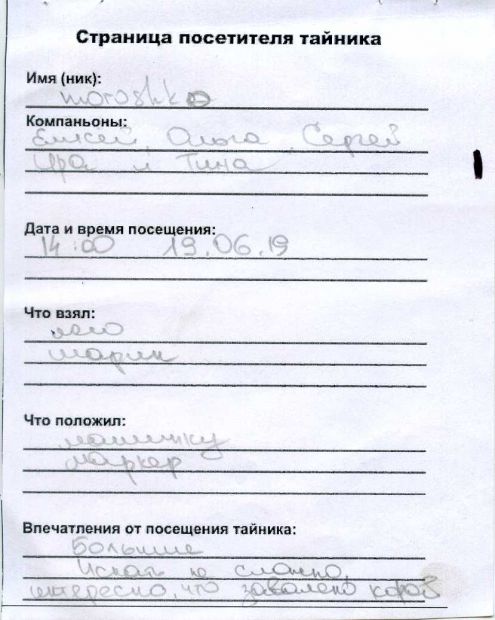 Страница посетителя тайника
Имя (ник):
moroshka
Компаньоны:
Елисей, Ольга, Сергей
Ира и Тина
Дата и время посещения:
14:00 19.06.19
Что взял:
лего
шарик
Что положил:
машинку
маркер
Впечатления от посещения тайника:
Большие
Искать не сложно,
интересно, что завалено корой